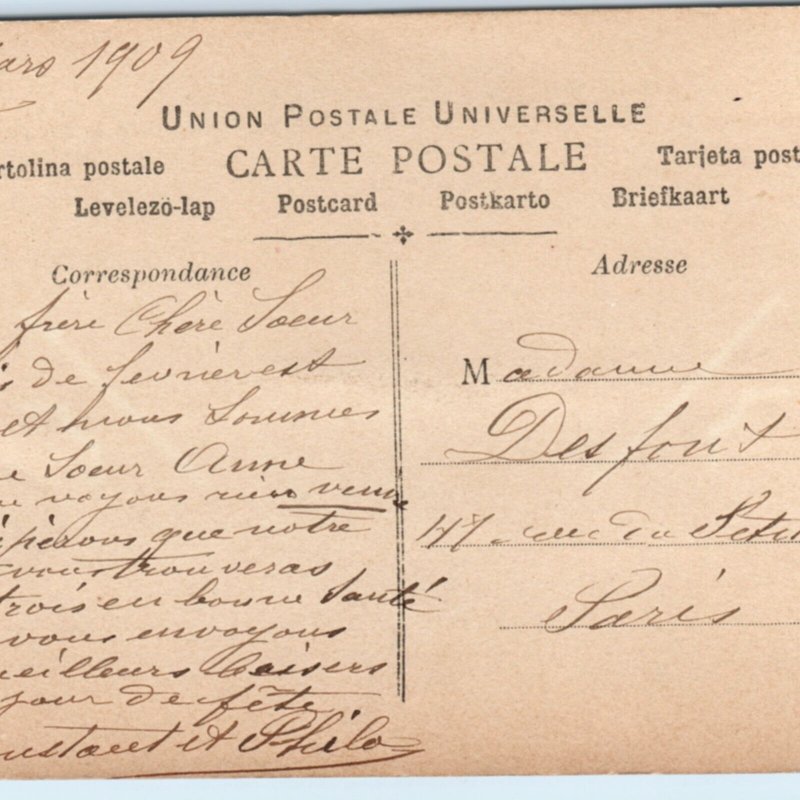 ars 1909
UNION POSTALE UNIVERSELLE
rtolina postale CARTE POSTALE Tarjeta post
Levelezö-lap Postcard Postkarto Briefkaart
Correspondance
frère Chère Soeur
s de fevrier est
et nous sommes
e Soeur Anne
voyons rien venir
pérons que notre
vous trouveras
trois en bonne Santé
vous envoyons
eilleurs baisers
jour de fête
nstant et Philo
Adresse
Madame
Desfont
47 rue du
Paris